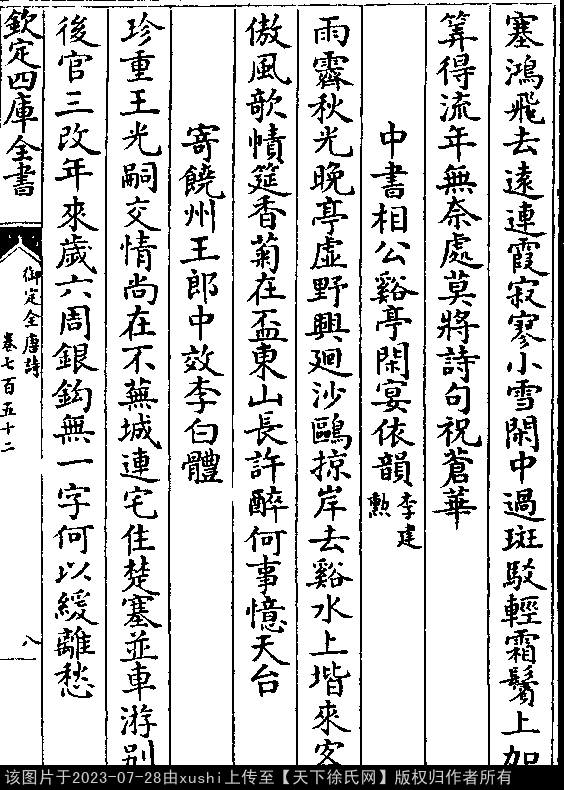 塞鴻飛去遠連霞寂寥小雪閑中過斑駁輕霜鬢上加
筭得流年無奈處莫將詩句祝蒼華
中書相公谿亭閑宴依韻李建勲
雨霽秋光晚亭虛野興廻沙鷗掠岸去谿水上堦來客
傲風歌幘筵香菊在盃東山長許醉何事憶天台
寄饒州王郎中效李白體
珍重王光嗣交情尚在不蕪城連宅住楚塞並車游别
後官三改年來歲六周銀鈎無一字何以緩離愁
欽定四庫全書
御定全唐詩
卷七百五十二
八
该图片于2023-07-28由xushi上传至【天下徐氏网】版权归作者所有